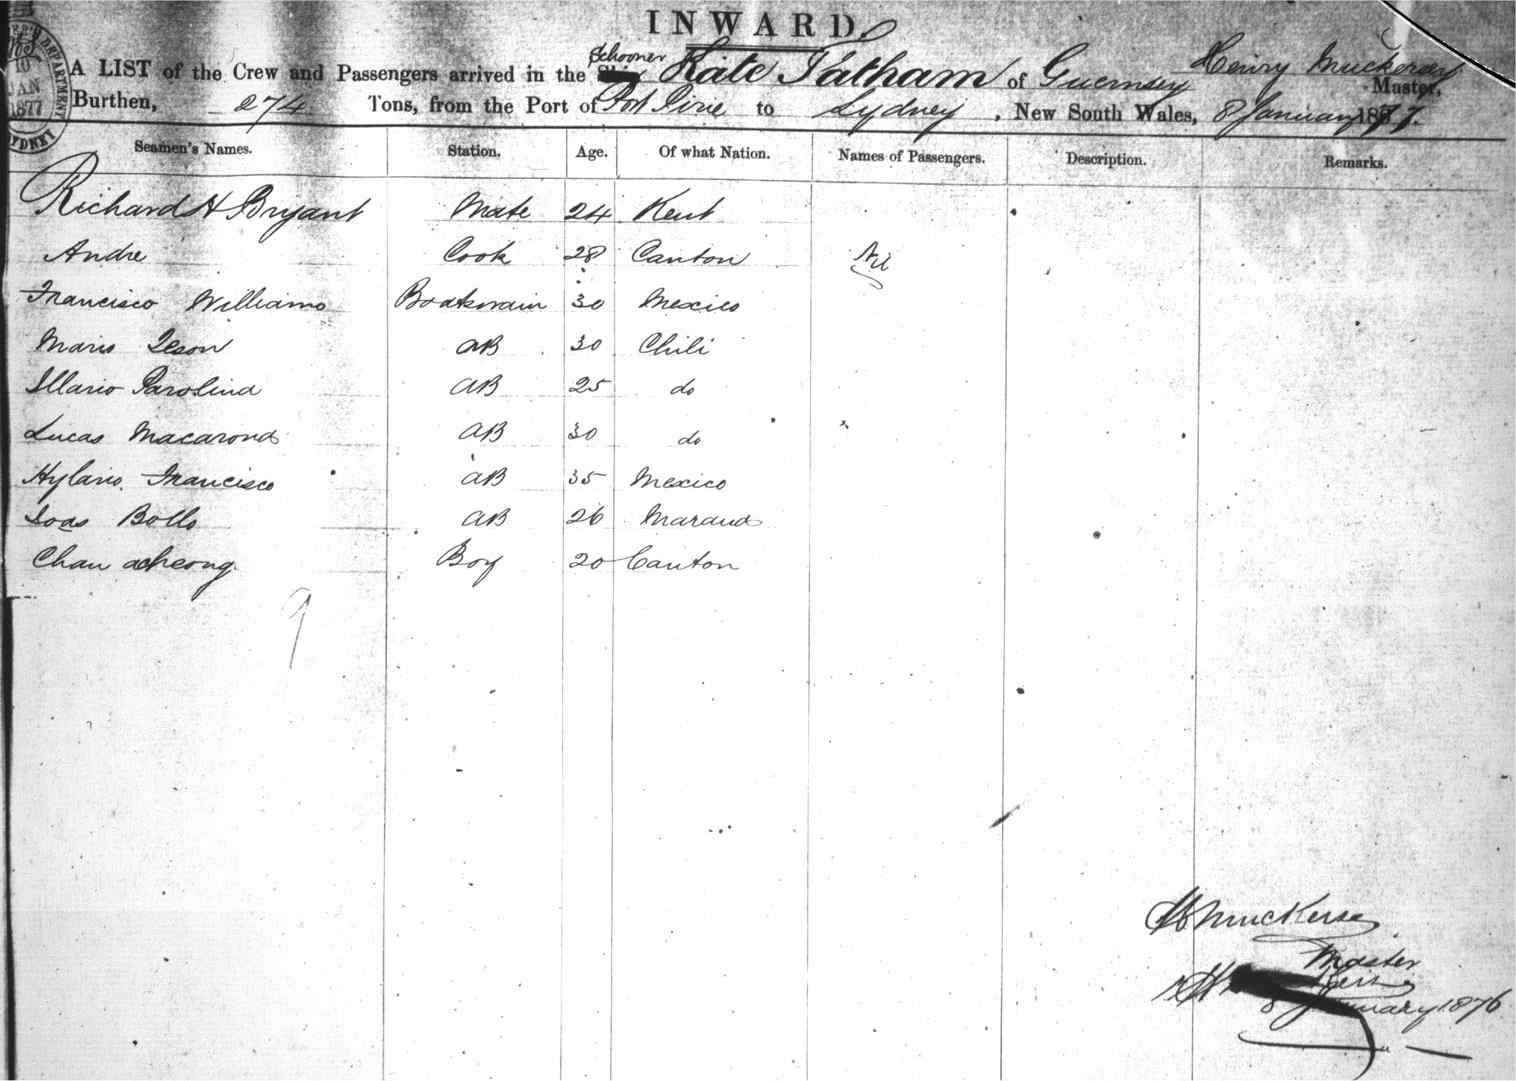 INWARD.
A LIST of the Crew and Passengers arrived in the Schooner Kate Tatham of Guernsey Henry Muckersy Master,
Burthen, 274 Tons, from the Port of Port Pirie to Sydney, New South Wales, 8 January 1877.
JAN 1877
SYDNEY
Seamen's Names. Station. Age. Of what Nation. Names of Passengers. Description. Remarks.
Richard H Bryant Mate 24 Kent
Andre Cook 28 Canton
Francisco Williams Boatswain 30 Mexico
AB 30 Chili
AB 25 do
Lucas AB 30 do
Hylario Francisco AB 35 Mexico
AB 26
Chan acheong Boy 20 Canton
9
Master
8 January 1876